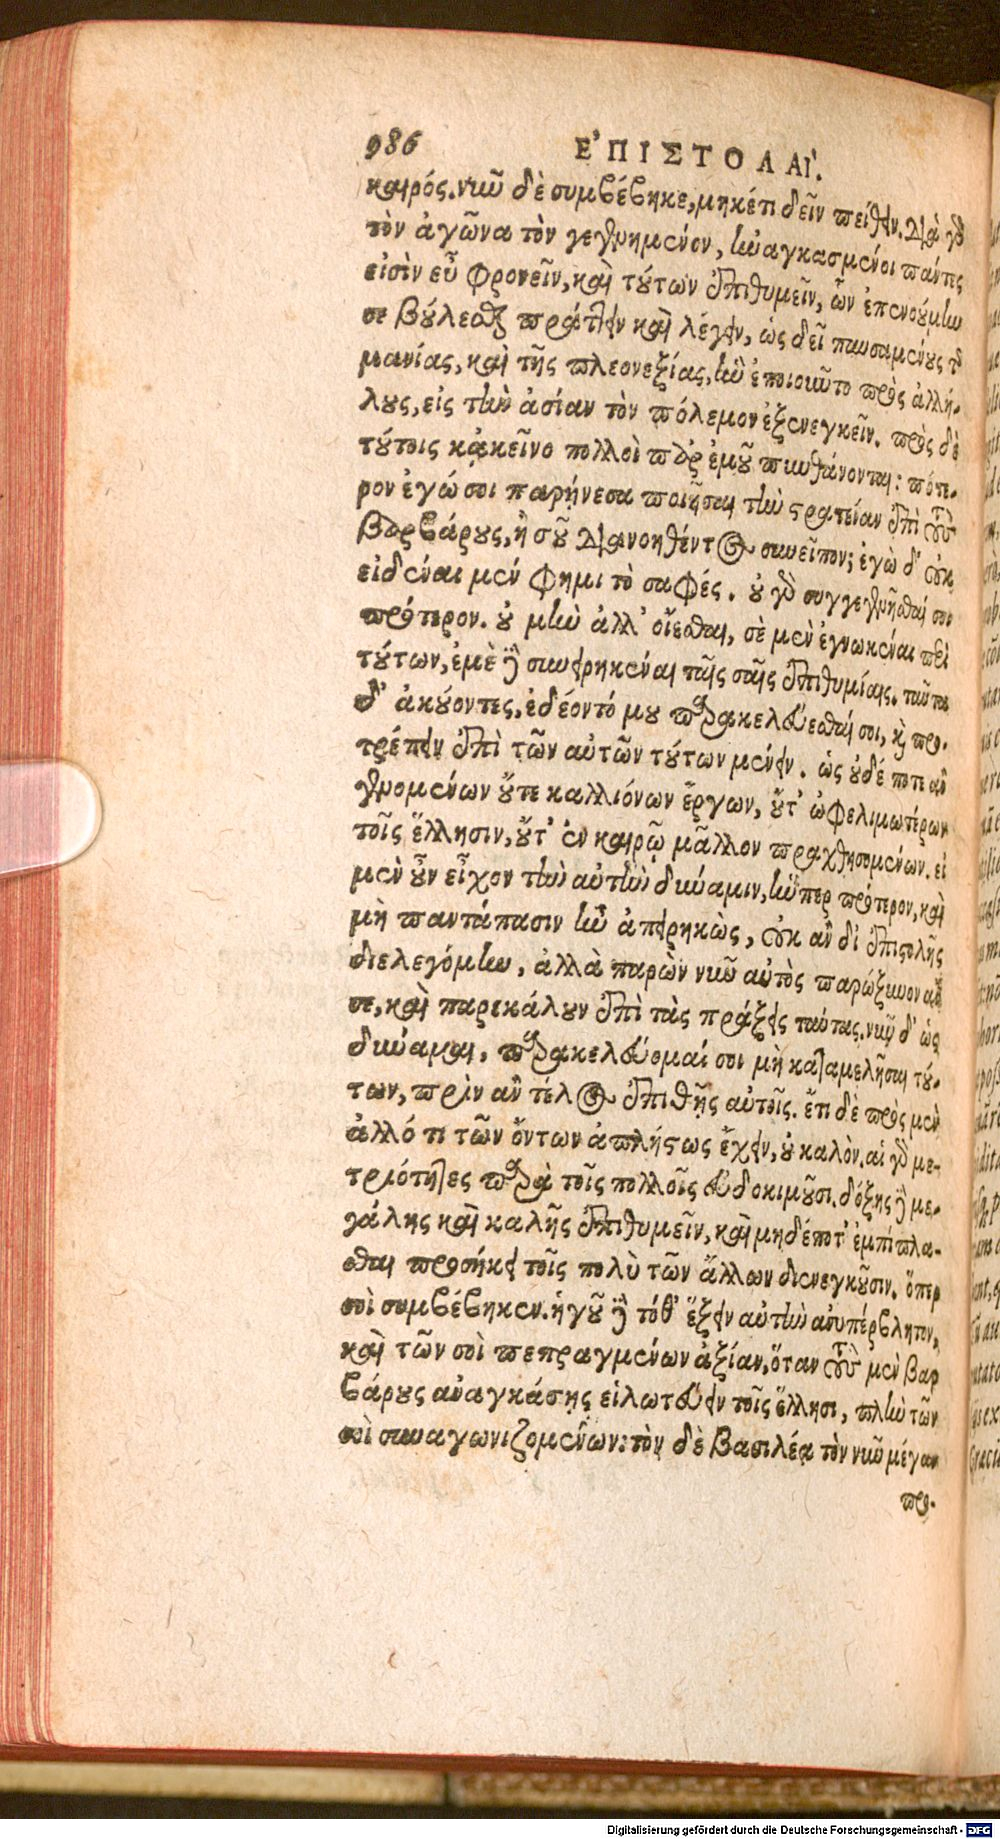 986 ἘΠΙΣΤΟΛΑΊ.
καιρός. νῦν δὲ συμβέβηκε, μηκέτι δεῖν πείθειν. διὰ γὸ
τὸν ἀγῶνα τὸν γεγενημένον, ἠναγκασμένοι πάντες
εἰσὶν εὖ φρονεῖν, καὶ τούτων ἐπιθυμεῖν, ὧν ἐπενοούμην
σε βούλεσθαι πράττειν καὶ λέγειν, ὡς δεῖ παυσαμένους τῆς
μανίας, καὶ τῆς πλεονεξίας, ἣν ἐποιοῦντο πρὸς ἀλλή-
λους, εἰς τὴν ἀσίαν τὸν πόλεμον ἐξενεγκεῖν. πρὸς δὲ
τούτοις κἀκεῖνο πολλοὶ παρ' ἐμοῦ πυνθάνονται: πότε-
ρον ἐγώ σοι παρῄνεσα ποιῆσαι τὴν στρατείαν ἐπὶ τοὺς
βαρβάρους, ἢ σοῦ διανοηθέντος συνεῖπον; ἐγὼ δ' οὐκ
εἰδέναι μέν φημι τὸ σαφές. οὐ γὰρ συγγεγενῆσθαί σοι
πρότερον. οὐ μὴν ἀλλ' οἴεσθαι, σὲ μὲν ἐγνωκέναι περὶ
τούτων, ἐμὲ δὲ συνειρηκέναι ταῖς σαῖς ἐπιθυμίαις. ταῦτα
δ' ἀκούοντες, ἐδέοντό μου παρακελεύεσθαί σοι, καὶ προ-
τρέπειν ἐπὶ τῶν αὐτῶν τούτων μένειν. ὡς οὐδέ ποτε ἂν
γενομένων οὔτε καλλιόνων ἔργων, οὔτ' ὠφελιμωτέρων
τοῖς ἕλλησιν, οὔτ' ἐν καιρῷ μᾶλλον πραχθησομένων. εἰ
μὲν οὖν εἶχον τὴν αὐτὴν δύναμιν, ἥνπερ πρότερον, καὶ
μὴ παντάπασιν ἦν ἀπειρηκὼς, οὐκ ἂν δι' ἐπιστολῆς
διελεγόμην, ἀλλὰ παρὼν νῦν αὐτὸς παρώξυνον ἄν
σε, καὶ παρεκάλουν ἐπὶ τὰς πράξεις ταύτας. νῦν δ' ὡς
δύναμαι, παρακελεύομαί σοι μὴ καταμελῆσαι τού-
των, πρὶν ἂν τέλος ἐπιθῇς αὐτοῖς. ἔτι δὲ πρὸς μὲν
ἀλλό τι τῶν ὄντων ἀπλήστως ἔχειν, οὐ καλὸν. αἱ γὰρ με-
τριότητες παρὰ τοῖς πολλοῖς εὐδοκιμοῦσι. δόξης δὲ με-
γάλης καὶ καλῆς ἐπιθυμεῖν, καὶ μηδέποτ' ἐμπίπλα-
σθαι προσήκει τοῖς πολὺ τῶν ἄλλων διενεγκοῦσιν. ὅπερ
σοὶ συμβέβηκεν. ἡγοῦ δὲ τόθ' ἕξειν αὐτὴν ἀνυπέρβλητον,
καὶ τῶν σοὶ πεπραγμένων ἀξίαν, ὅταν τοὺς μὲν βαρ
βάρους ἀναγκάσῃς εἱλωτεύειν τοῖς ἕλλησι, πλὴν τῶν
σοὶ συναγωνιζομένων: τὸν δὲ βασιλέα τὸν νῦν μέγαν
προ-
Digitalisierung gefördert durch die Deutsche Forschungsgemeinschaft - DFG